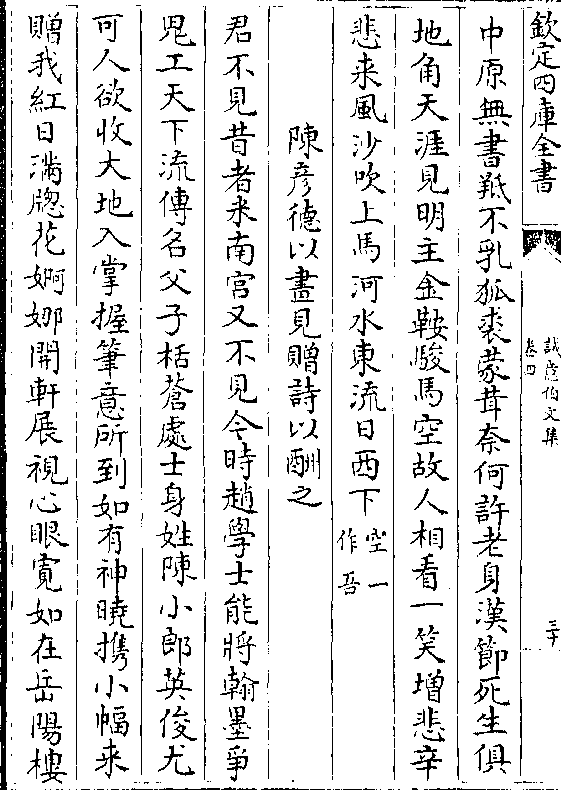 欽定四庫全書
誠意伯文集
卷四
三十
中原無書羝不乳狐裘蒙茸奈何許老身漢節死生俱
地角天涯見明主金鞍駿馬空故人相看一笑增悲辛
悲来風沙吹上馬河水東流日西下空一作吾
陳彦德以畫見贈詩以酬之
君不見昔者米南宫又不見今時趙學士能將翰墨爭
鬼工天下流傳名父子栝蒼處士身姓陳小郎英俊尤
可人欲收大地入掌握筆意所到如有神曉携小幅来
贈我紅日滿牕花婀娜開軒展視心眼寛如在岳陽樓